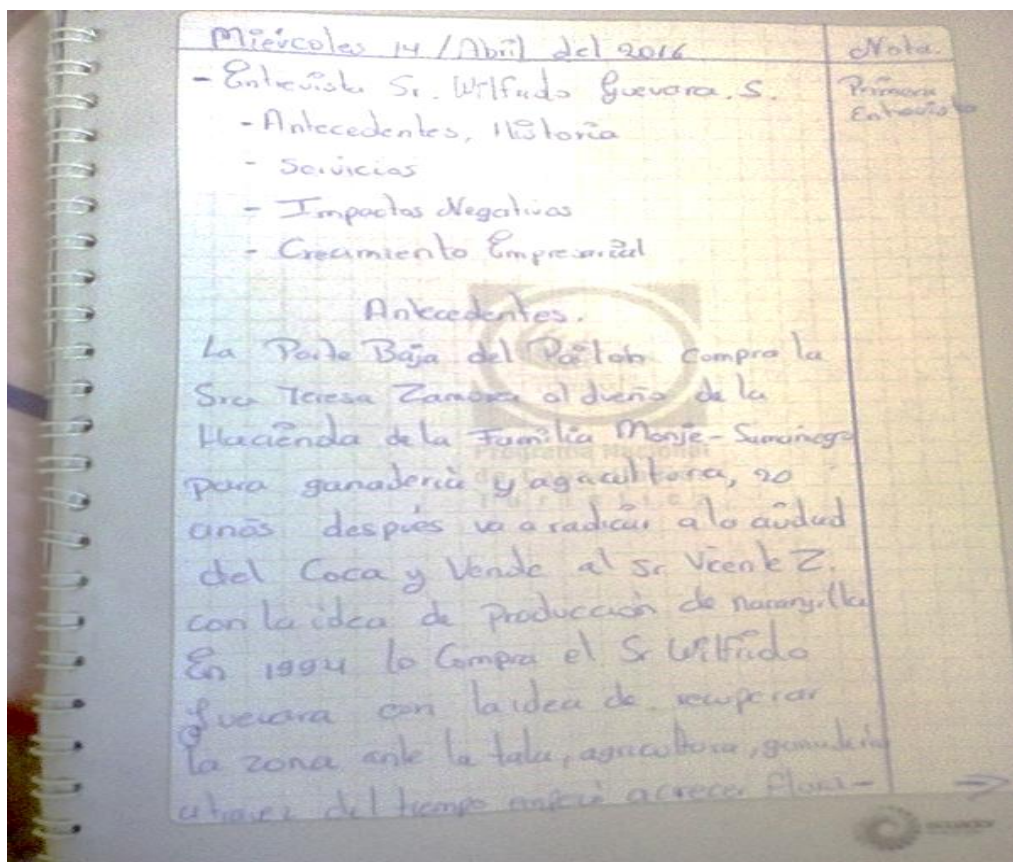 Miercoles 14 / Abril del 2016
Nota.
- Entrevista Sr. Wilfrido Guevara. S.
Primera
Entrevista
- Antecedentes, Historia
- Servicios
- Impactos Negativos
- Crecimiento Empresarial
Antecedentes.
La Parte Baja del Pailon compra la
Sra Teresa Zamora al dueño de la
Hacienda de la Familia Monje-
Programa Nacional
para ganaderia y agricultura, 20
anõs después va a radicar a la ciudad
del Coca y Vende al Sr Vicente Z.
con la idea de Producción de naranjilla
En 1994 lo Compra el Sr Wilfrido
Guevara con la idea de recuperar
la zona ante la tala, agricultura, ganaderia
atravez del tiempo empezó a crecer flora-